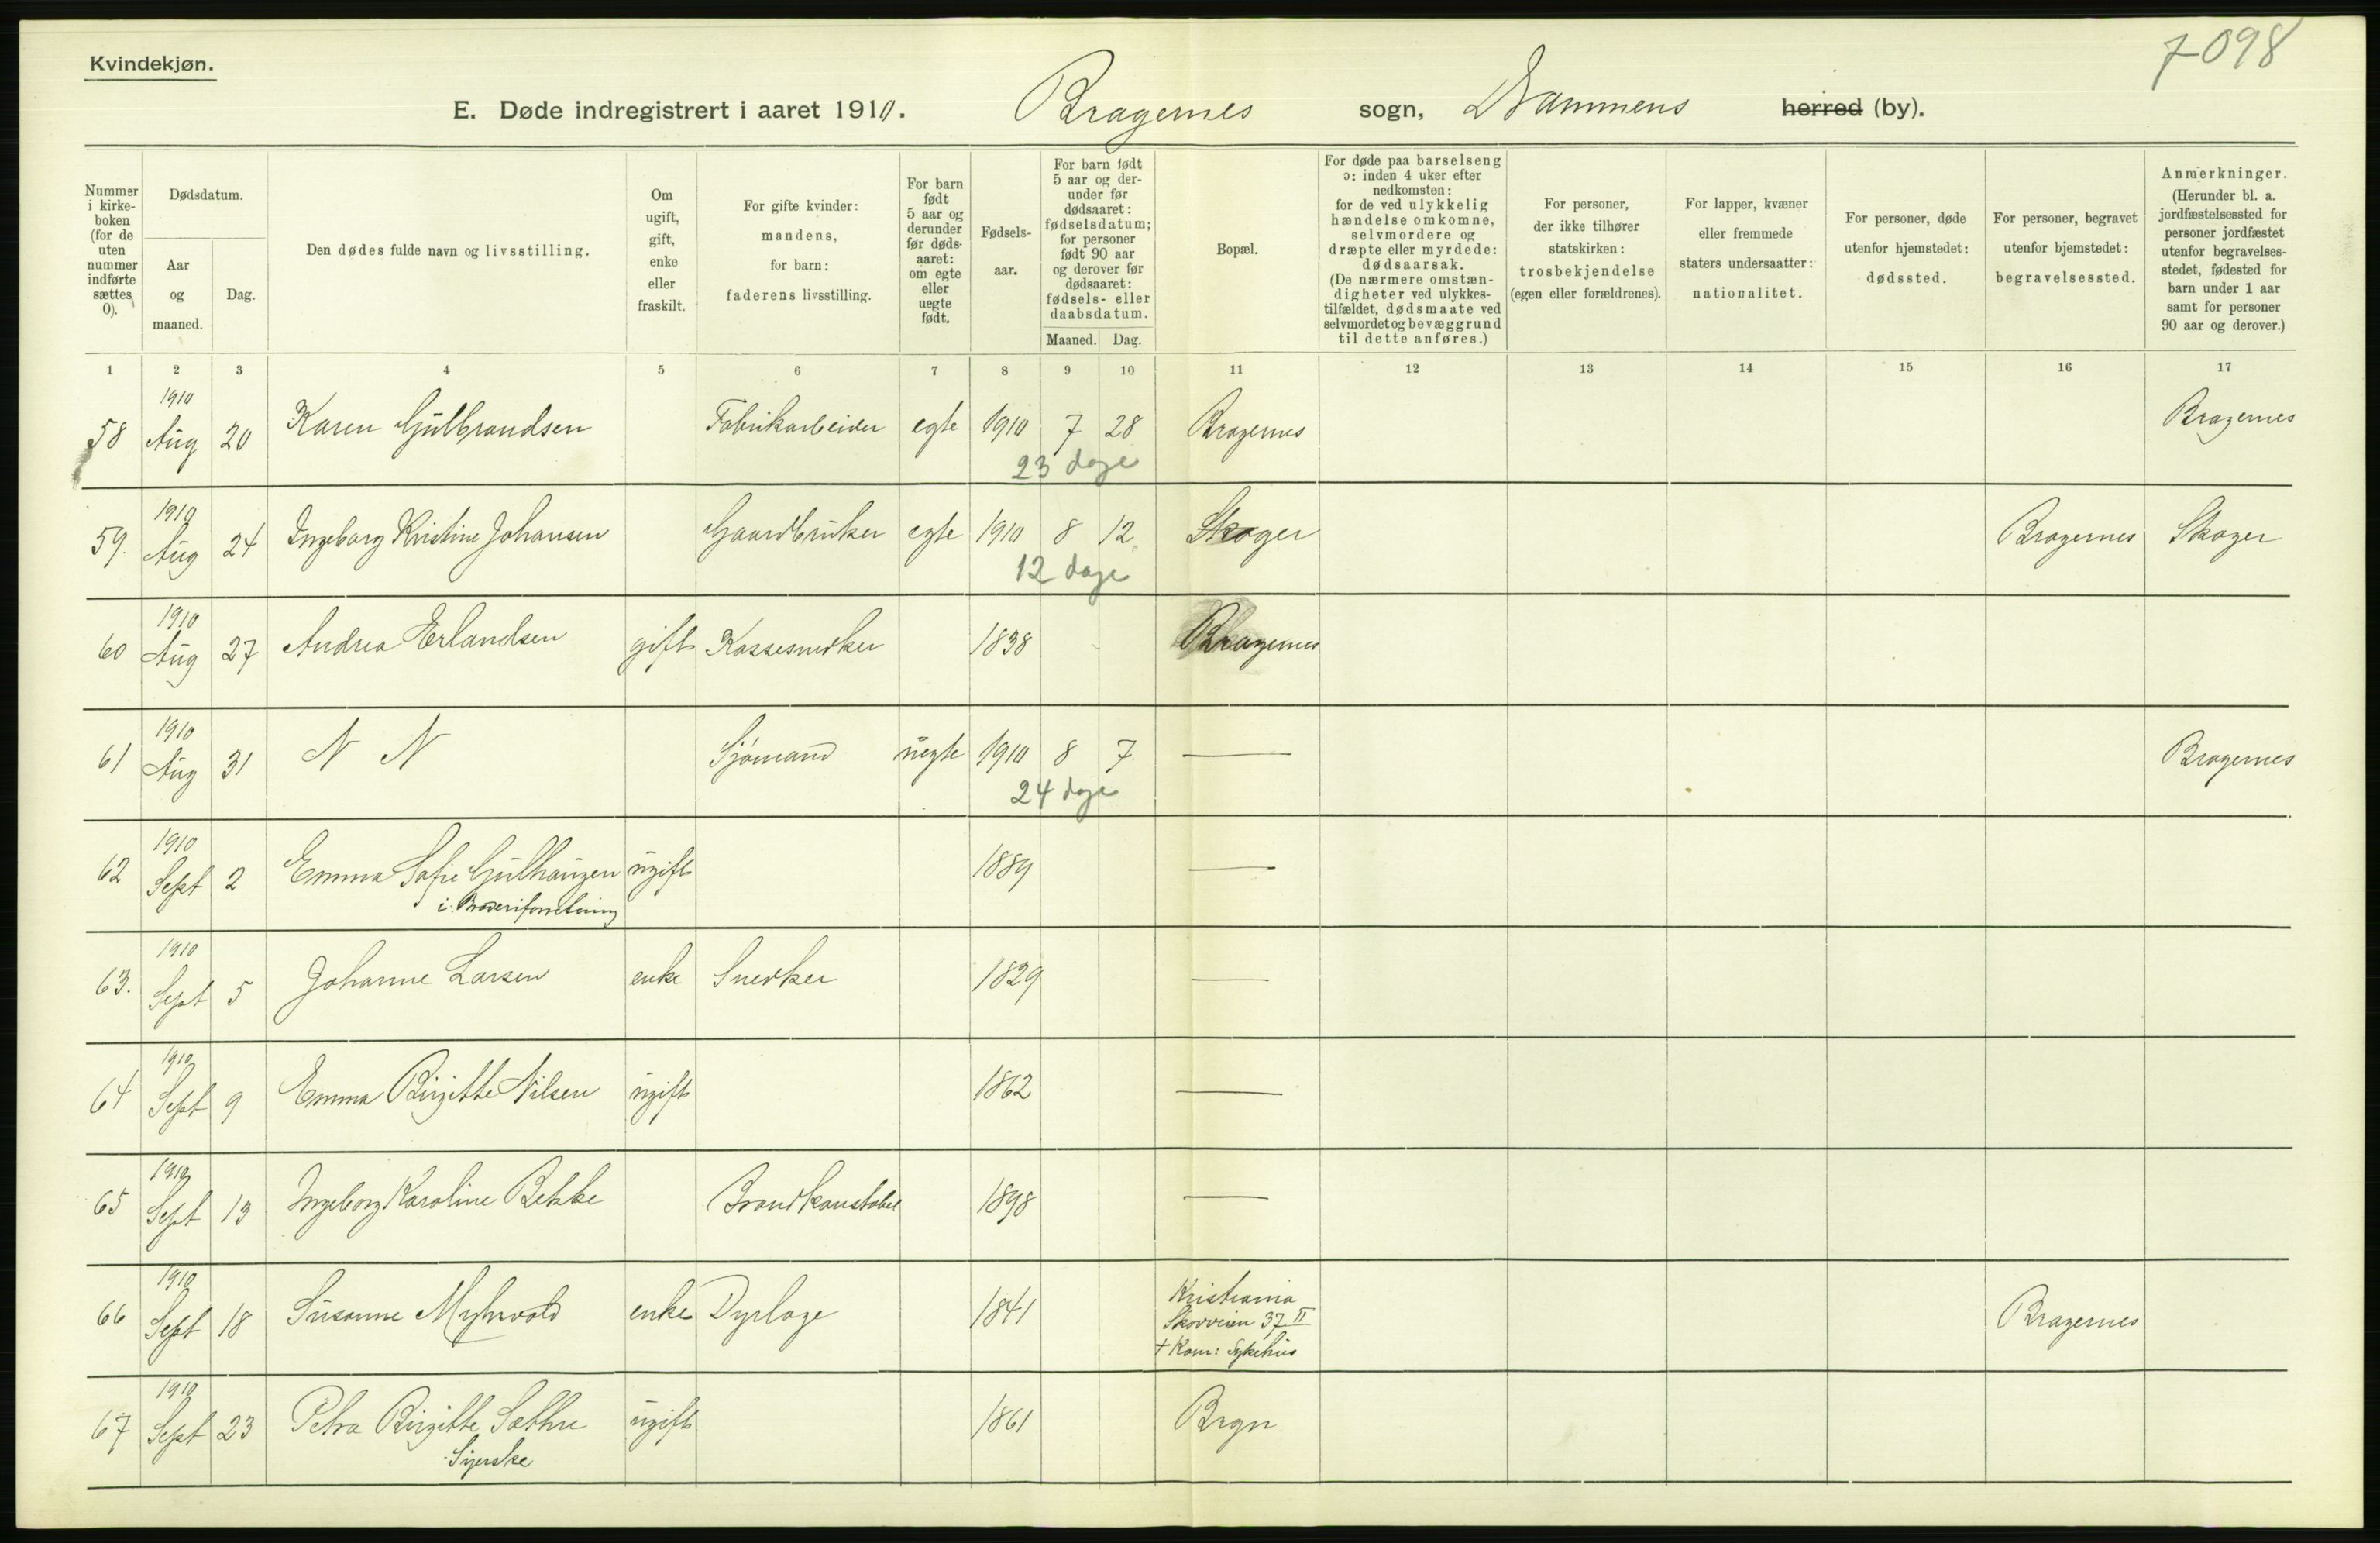 7098
Kvindekjøn.
E. Døde indregistrert i aaret 1910. Bragernes sogn, Drammens herred (by).
Nummer i kirke-boken (for de uten nummer indførte sættes 0).
Dødsdatum.
Aar og maaned.
Dag.
Den dødes fulde navn og livsstilling.
Om ugift, gift, enke eller fraskilt.
For gifte kvinder: mandens, for barn: faderens livsstilling.
For barn født 5 aar og derunder før døds-aaret: om egte eller uegte født.
Fødsels-aar.
For barn født 5 aar og der-under før dødsaaret: fødselsdatum; for personer født 90 aar og derover før dødsaaret: fødsels- eller daabsdatum.
Maaned. Dag.
Bopæl.
For døde paa barselseng ɔ: inden 4 uker efter nedkomsten: for de ved ulykkelig hændelse omkomne, selvmordere og dræpte eller myrdede: dødsaarsak. (De nærmere omstæn-digheter ved ulykkes-tilfældet, dødsmaate ved selvmordet og bevæggrund til dette anføres.)
For personer, der ikke tilhører statskirken: trosbekjendelse (egen eller forældrenes).
For lapper, kvæner eller fremmede staters undersaatter: nationalitet.
For personer, døde utenfor hjemstedet: dødssted.
For personer, begravet utenfor hjemstedet: begravelsessted.
Anmerkninger. (Herunder bl. a. jordfæstelsessted for personer jordfæstet utenfor begravelses-stedet, fødested for barn under 1 aar samt for personer 90 aar og derover.)
1 2 3 4 5 6 7 8 9 10 11 12 13 14 15 16 17
58 1910 Aug 20 Karen Gulbrandsen Fabrikarbeider egte 1910 7 28 Bragernes Bragernes
23 dage
59. 1910 Aug 24 Ingeborg Kristine Johansen Gaardbruker egte 1910 8 12 Skoger Bragernes Skoger
12 dage
60 1910 Aug 27 Andrea Erlandsen gift Kassesnedker 1838 Bragernes
61 1910 Aug 31 N N Sjömand uegte 1910 8 7 — Bragernes
24 dage
62 1910 Sept 2 Emma Sofie Gulhaugen ugift 1889 —
i Broderiforretning
63. 1910 Sept 5 Johanne Larsen enke Snedker 1829 —
64 1910 Sept 9 Emma Birgitte Nilsen ugift 1862 —
65 1910 Sept 13 Ingeborg Karoline Bekke Brandkonstabel 1898 —
66 1910 Sept 18 Susanne Myhrvold enke Dyrlæge 1841 Kristiania Bragernes
Skovveien 37 II
+ Kom: Sykehus
67 1910 Sept 23 Petra Birgitte Sæthre ugift 1861 Brgn
Syerske